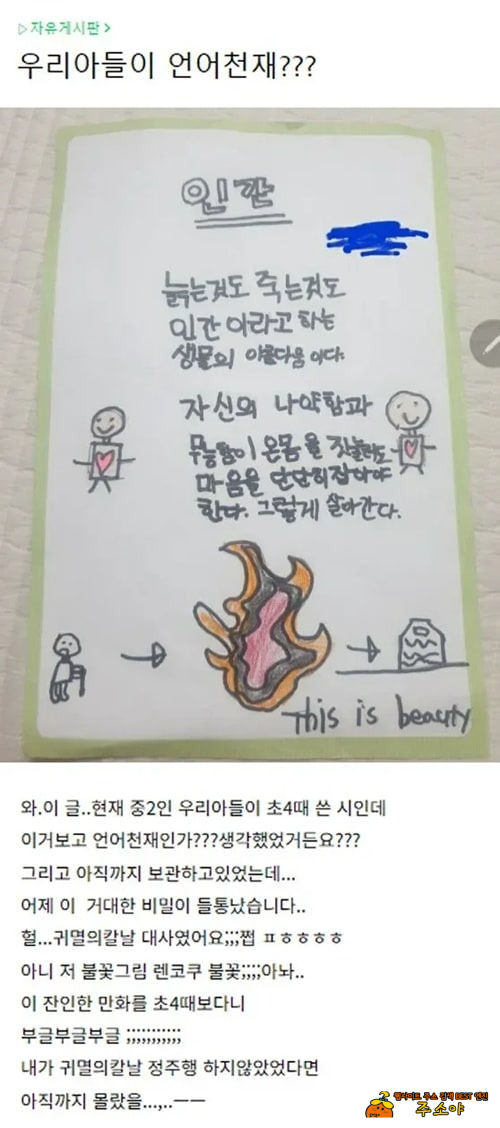 ▷자유게시판 >
우리아들이 언어천재???
인간
늙는것도 죽는것도
인간이라고 하는
생물의 아름다움 이다.
자신의 나약함과
무능함이 온몸을 짓눌러도
마음을 단단히잡아야
한다. 그렇게 살아간다.
This is beauty
와.이 글..현재 중2인 우리아들이 초4때 쓴 시인데
이거보고 언어천재인가???생각했었거든요???
그리고 아직까지 보관하고있었는데...
어제 이 거대한 비밀이 들통났습니다..
헐...귀멸의칼날 대사였어요;;;쩝 ㅍㅎㅎㅎㅎ
아니 저 불꽃그림 렌코쿠 불꽃;;;;아놔..
이 잔인한 만화를 초4때보다니
부글부글부글 ;;;;;;;;;;;
내가 귀멸의칼날 정주행 하지않았었다면
아직까지 몰랐을...,..ㅡㅡ
웹사이트 주소 검색 BEST 엔진
주소야